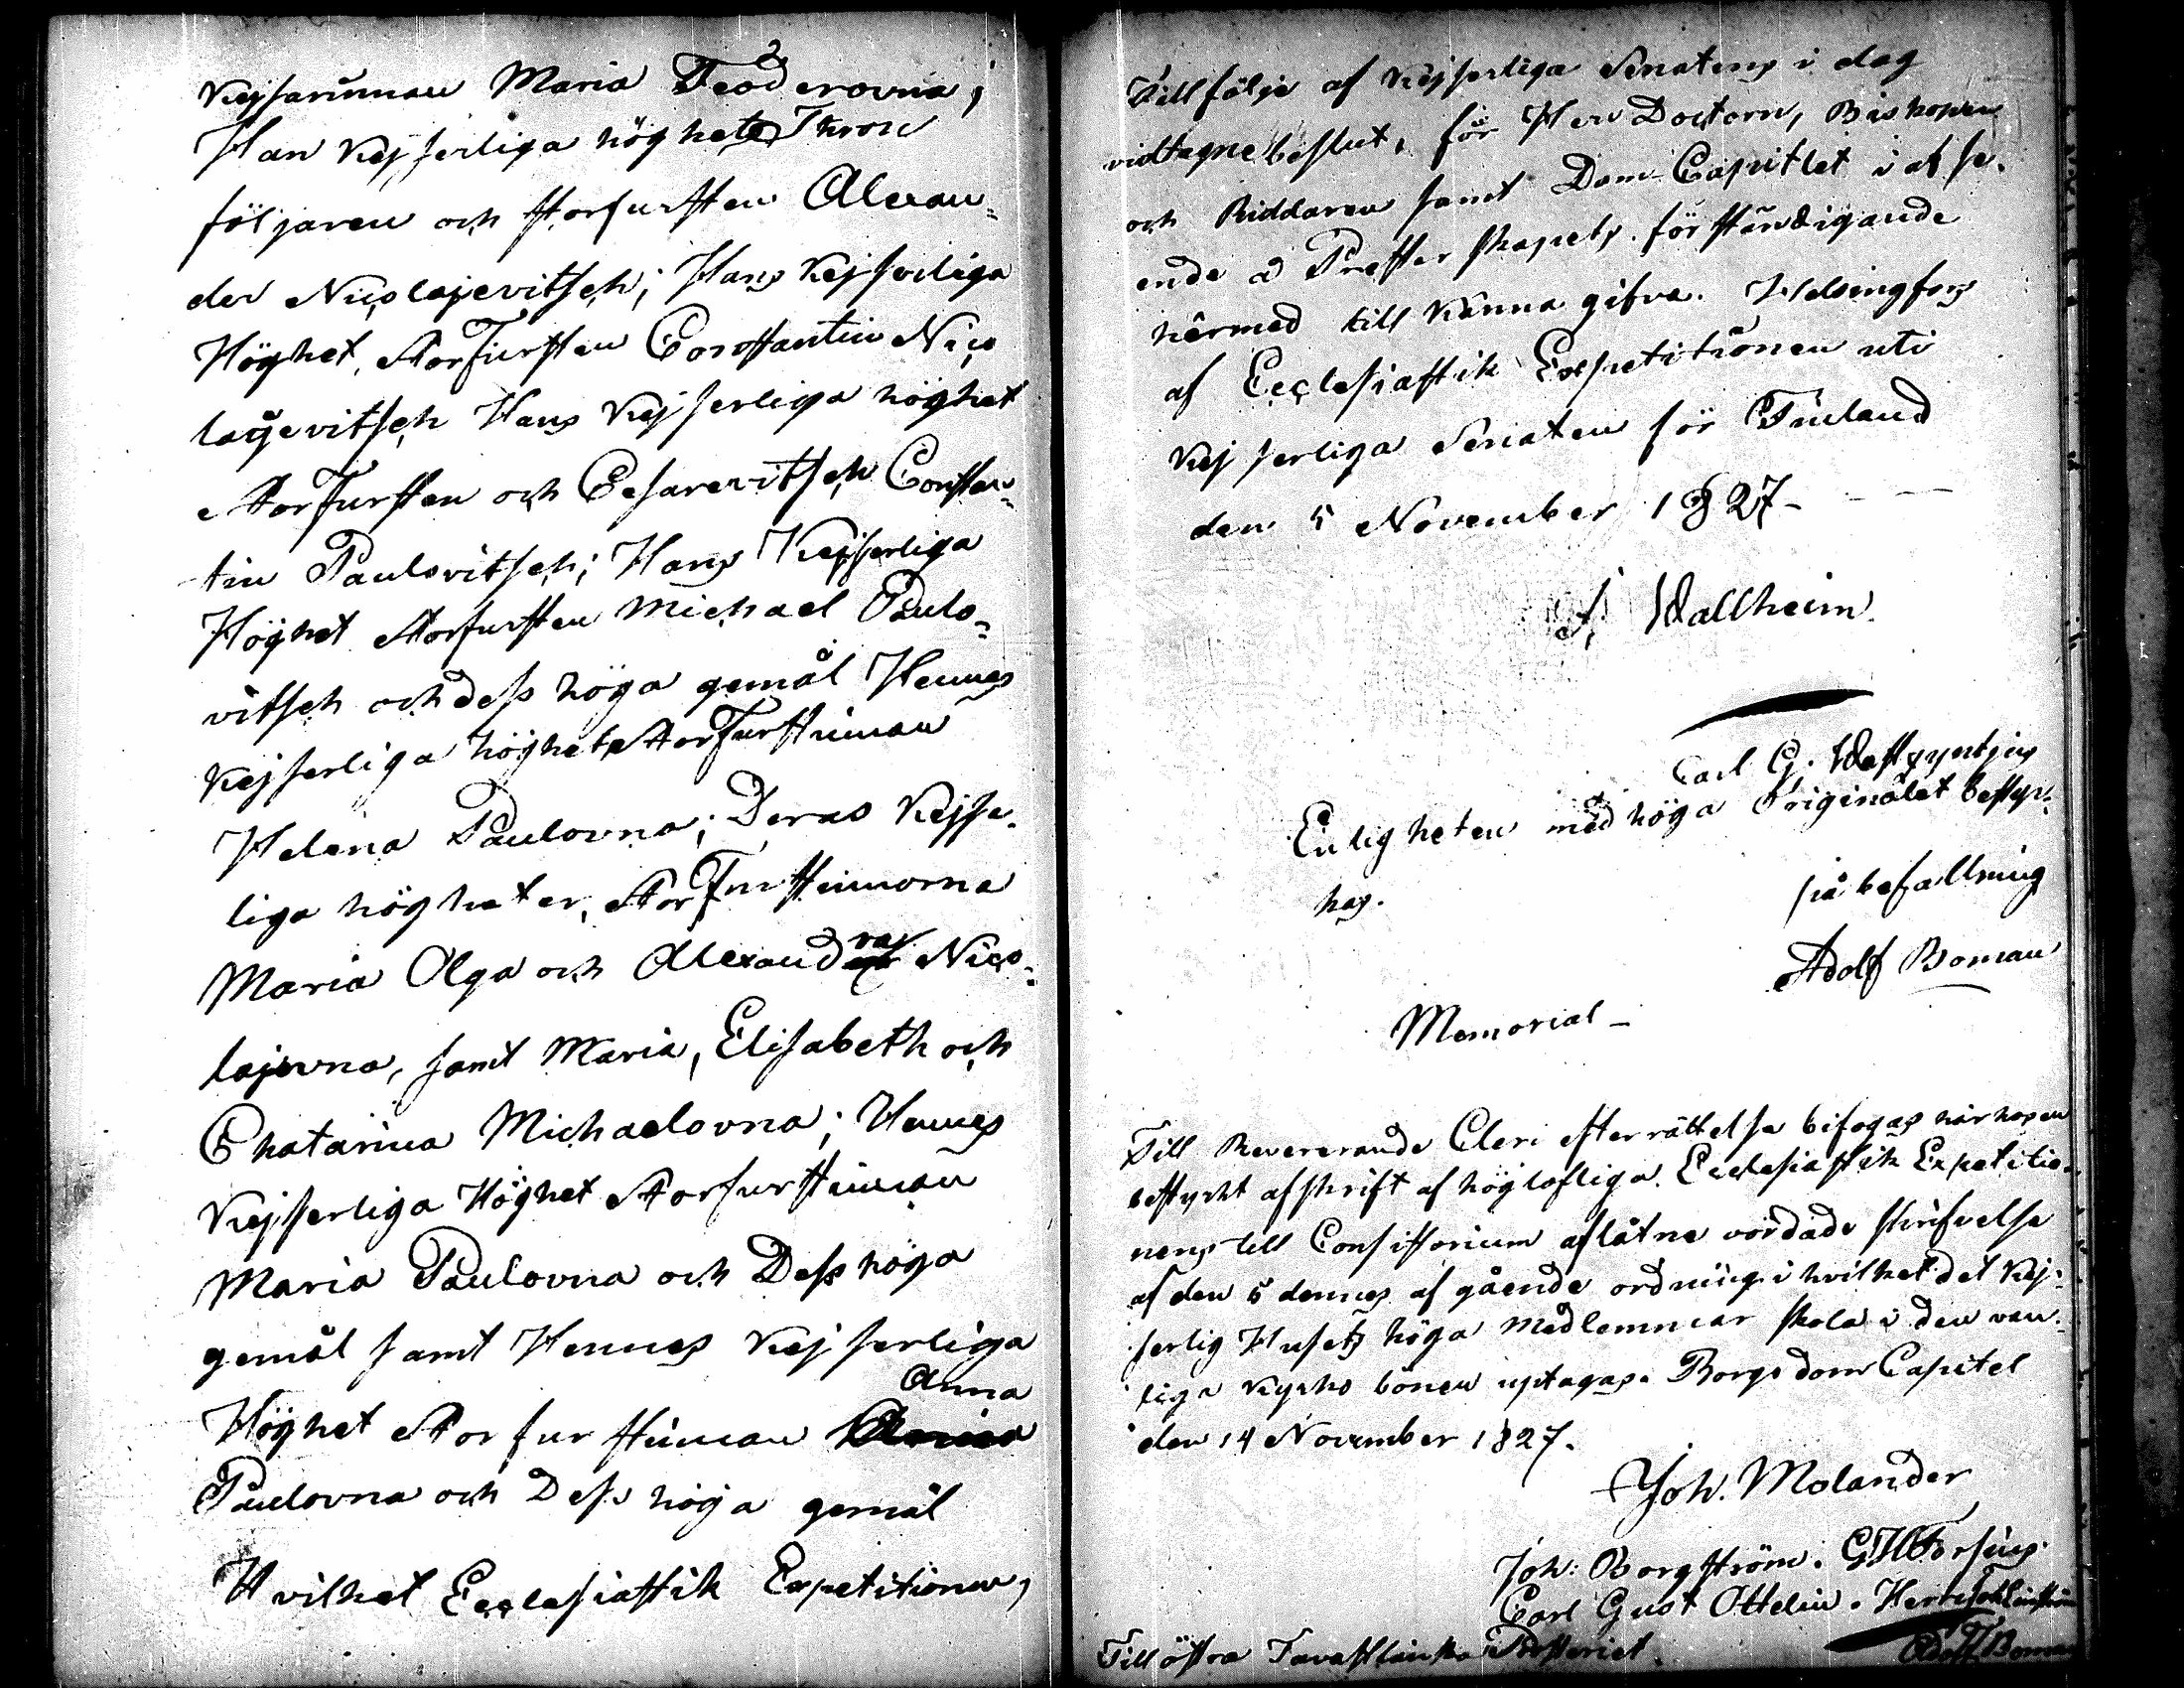 Kejsarinnan Maria Feoderovna;
Han Kejserliga höghets Thron
följaren och Storfursten Alexan=
der Nicolajevitsch; Hans Kejserliga
Höghet, StorFursten Constantin Nico
lajevitsch Hans Kejserliga höghet
StorFursten och Cesarevitsch Constan=
tin Paulovitsch; Hans Kejserliga
Höghet Storfursten Michael Paulo=
vitsch och dess höga gemål Hennes
Kejserliga höghet StorFurstinnan
Helena Paulovna; Deras Kejse=
liga högheter, StorFurstinnorna
Maria Olga och Alexandra Nico=
lajevna, samt Maria, Elisabeth och
Chatarina Michaelovna; Hennes
Kejserliga Höghet Storfurstinnan
Maria Paulovna och Dess höga
gemål samt Hennes Kejserliga
Höghet Storfurstinnan Anna
Paulovna och Dess höga gemål
Hvilket Ecclesiastik Expetitionen,
Till följe af Kejserliga Senatens i dag
vidtagne beslut, för Herr Doctorn, Biskopen
och Riddaren samt Dom-Capitlet i afse=
ende å Presterskapets förständigande
härmed till känna gifva. Helsingfors
af Ecclesiastik Expetitionen uti
Kejserliga Senaten för Finland
den 5 November 1827-
Wallheim.
Carl G.
Enligheten med höga Originalet bestyr=
kas.
på befallning
Adolf Boman
Memorial-
Till Revererande Cleri efterrättelse bifogas härhos en
bestyrkt afskrift af höglofliga Ecclesiastik Expetitio=
nens till Consistorium aflåtne vördade skrifvelse
af den 5 dennes af gående ordning i hvilket det Kej=
serlig Husets höga medlemmar skola i den van=
liga Kyrko bönen uptagas. Borgo dom Capitel
den 14 November 1827.
Joh. Molander
Joh: Borgström. G
Carl Gust Ottelin.
Till östra Tavastlänska Prosteriet.